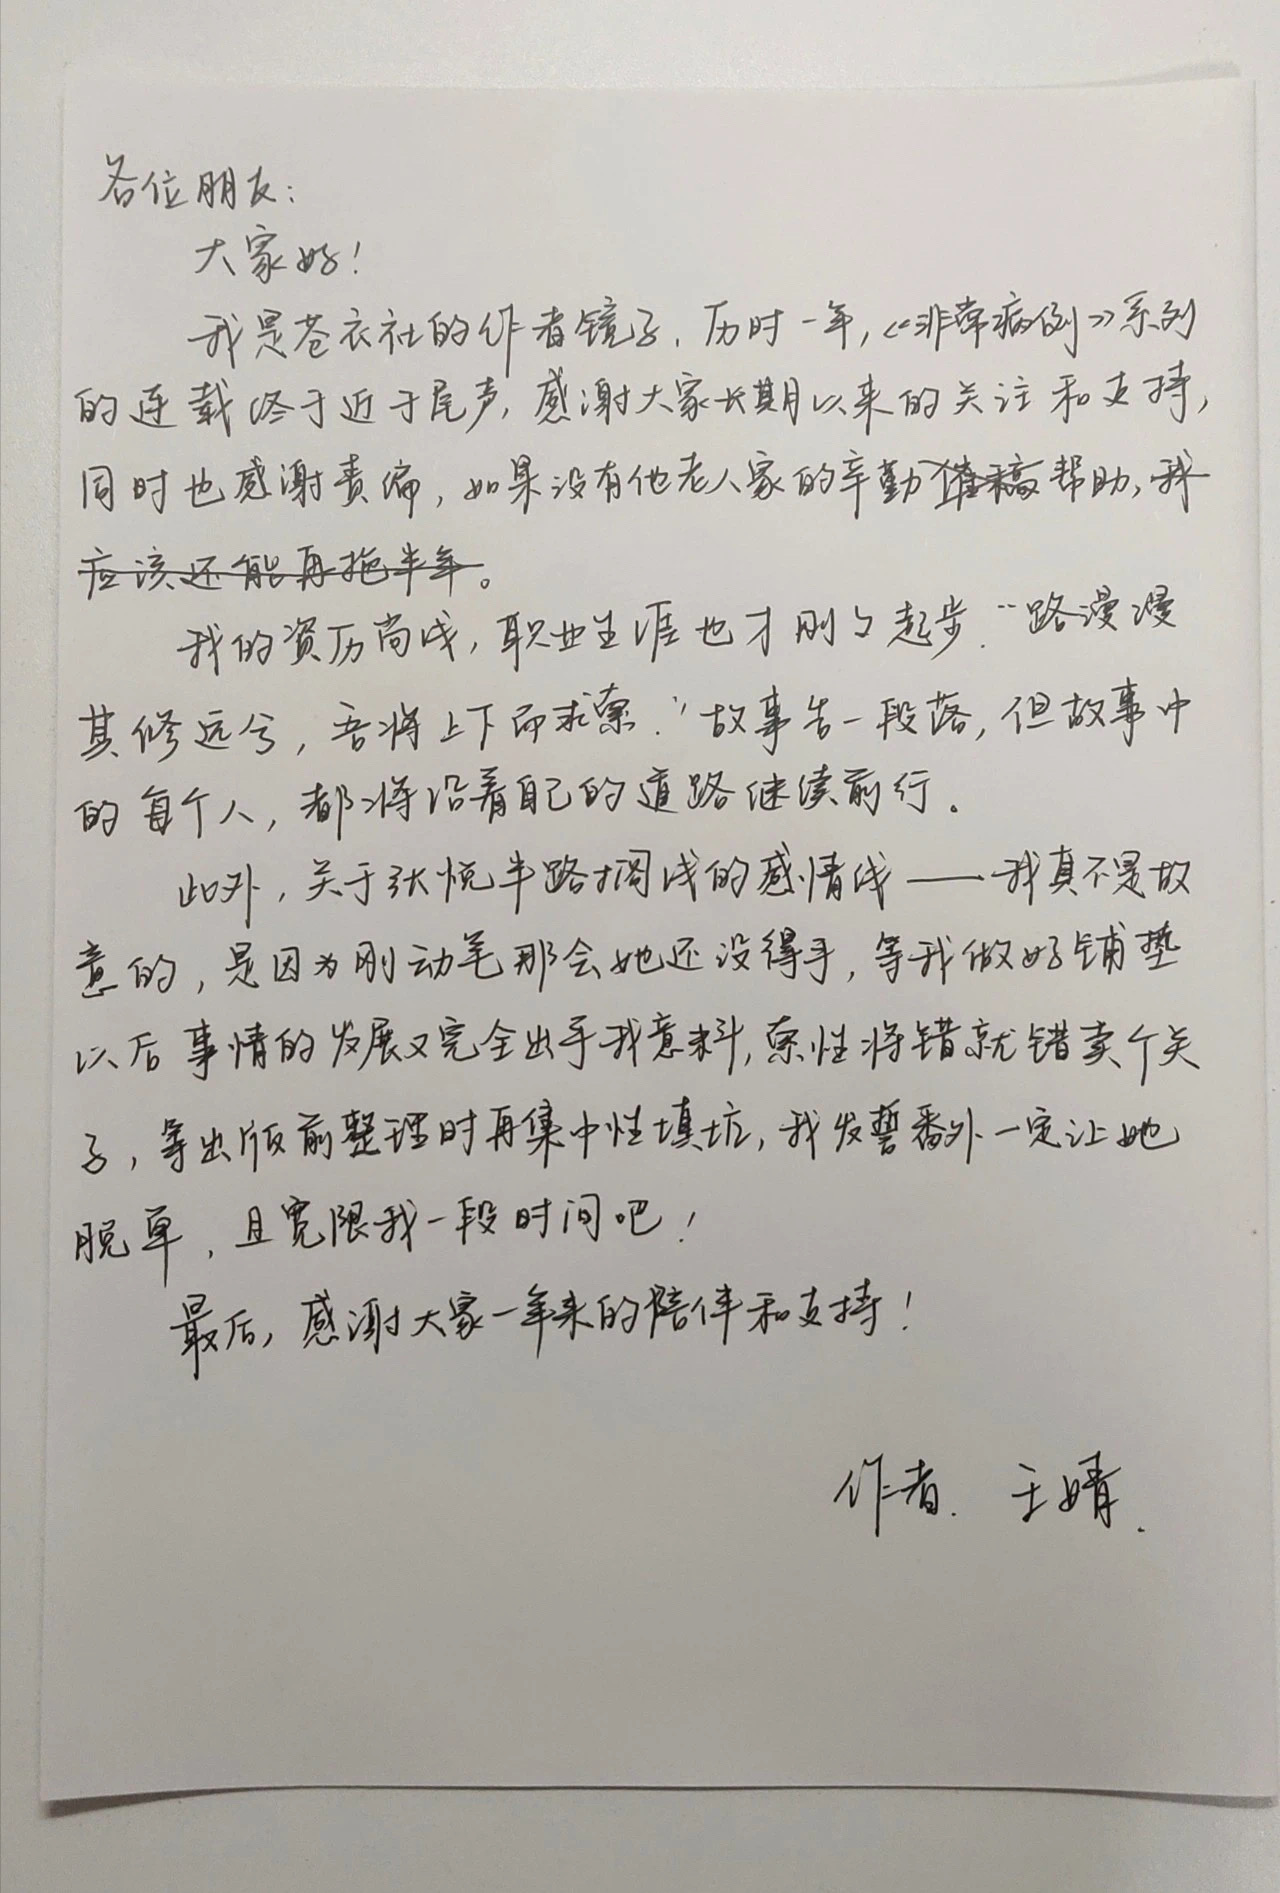 各位朋友：
大家好！
我是苍衣社的作者镜子，历时一年，《非常病例》系列
的连载终于近于尾声，感谢大家长期以来的关注和支持，
同时也感谢责编，如果没有他老人家的辛勤催稿帮助，我
应该还能再拖半年。
我的资历尚浅，职业生涯也才刚刚起步．“路漫漫
其修远兮，吾将上下而求索．”故事告一段落，但故事中
的每个人，都将沿着自己的道路继续前行。
此外，关于张悦半路搁浅的感情线——我真不是故
意的，是因为刚动笔那会她还没得手，等我做好铺垫
以后事情的发展又完全出乎我意料，索性将错就错卖个关
子，等出版前整理时再集中性填坑，我发誓番外一定让她
脱单，且宽限我一段时间吧！
最后，感谢大家一年来的陪伴和支持！
作者．王婧．